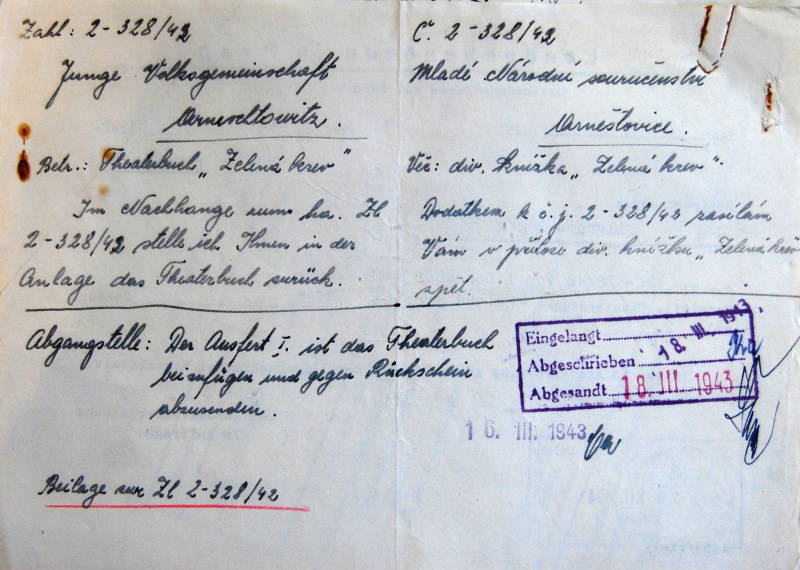 Zahl: 2-328/42
Junge Volksgemeinschaft
Arneschtowitz.
Betr.: Theaterbuch „Zelená krev"
Im Nachhange zum ha. Zl
2-328/42 stelle ich Ihnen in der
Anlage das Theaterbuch zurück.
Č. 2-328/42
Mladé Národní souručenství
Arneštovice.
Věc: div. knížka „Zelená krev".
Dodatkem k č.j. 2-328/42 zasílám
Vám v příloze div. knížku „Zelená krev
zpět.
Abgangstelle: Der Ausfert I. ist das Theaterbuch
beizufügen und gegen Rückschein
abzusenden.
Eingelangt
Abgeschrieben 18 III. 1943
Abgesandt 18 III 1943
16. III. 1943
Beilage zur Zl 2-328/42